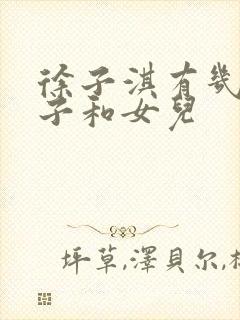 徐子淇有幾
子和女兒
坪草,澤貝尔,